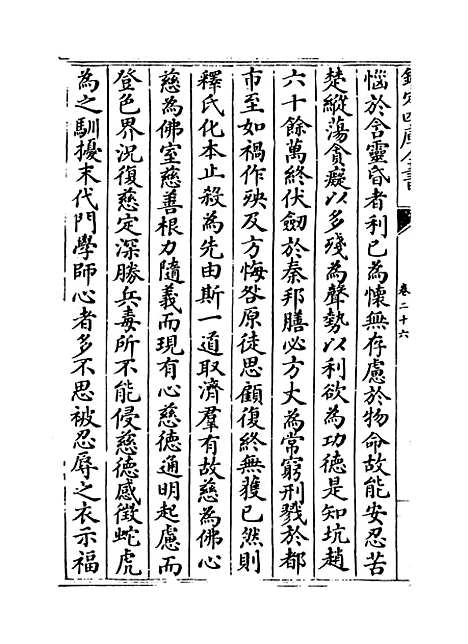 欽定四庫全書
卷二十六
惱於含靈昏者利己為懷無存慮於物命故能安忍苦
楚縱蕩貪癡以多殘為聲勢以利欲為功德是知坑趙
六十餘萬終伏劒於秦邦膳必方丈為常窮刑戮於都
市至如禍作殃及方悔咎原徒思顧復終無獲已然則
釋氏化本止殺為先由斯一道取濟羣有故慈為佛心
慈為佛室慈善根力隨義而現有心慈徳通明起慮而
登色界況復慈定深勝兵毒所不能侵慈徳感徴蛇虎
為之馴擾末代門學師心者多不思被忍辱之衣示福